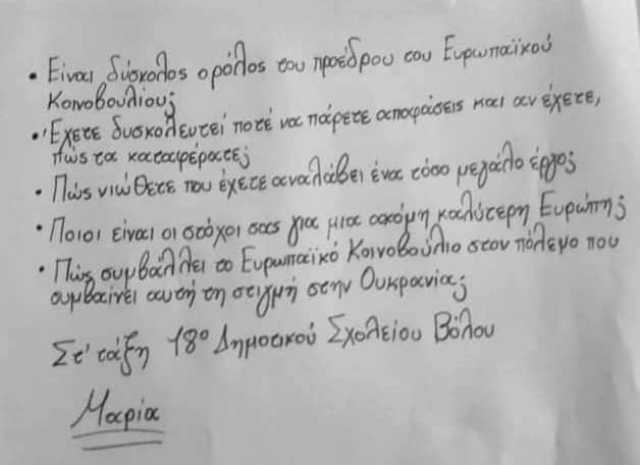 • Είναι δύσκολος ο ρόλος του προέδρου του Ευρωπαϊκού
Κοινοβουλίου;
• Έχετε δυσκολευτεί ποτέ να πάρετε αποφάσεις και αν έχετε,
πώς τα καταφέρατε;
• Πώς νιώθετε που έχετε αναλάβει ένα τόσο μεγάλο έργο;
• Ποιοι είναι οι στόχοι σας για μια ακόμη καλύτερη Ευρώπη;
• Πώς συμβάλλει το Ευρωπαϊκό Κοινοβούλιο στον πόλεμο που
συμβαίνει αυτή τη στιγμή στην Ουκρανία;
Στ' τάξη 18ο Δημοτικού Σχολείου Βόλου
Μαρία